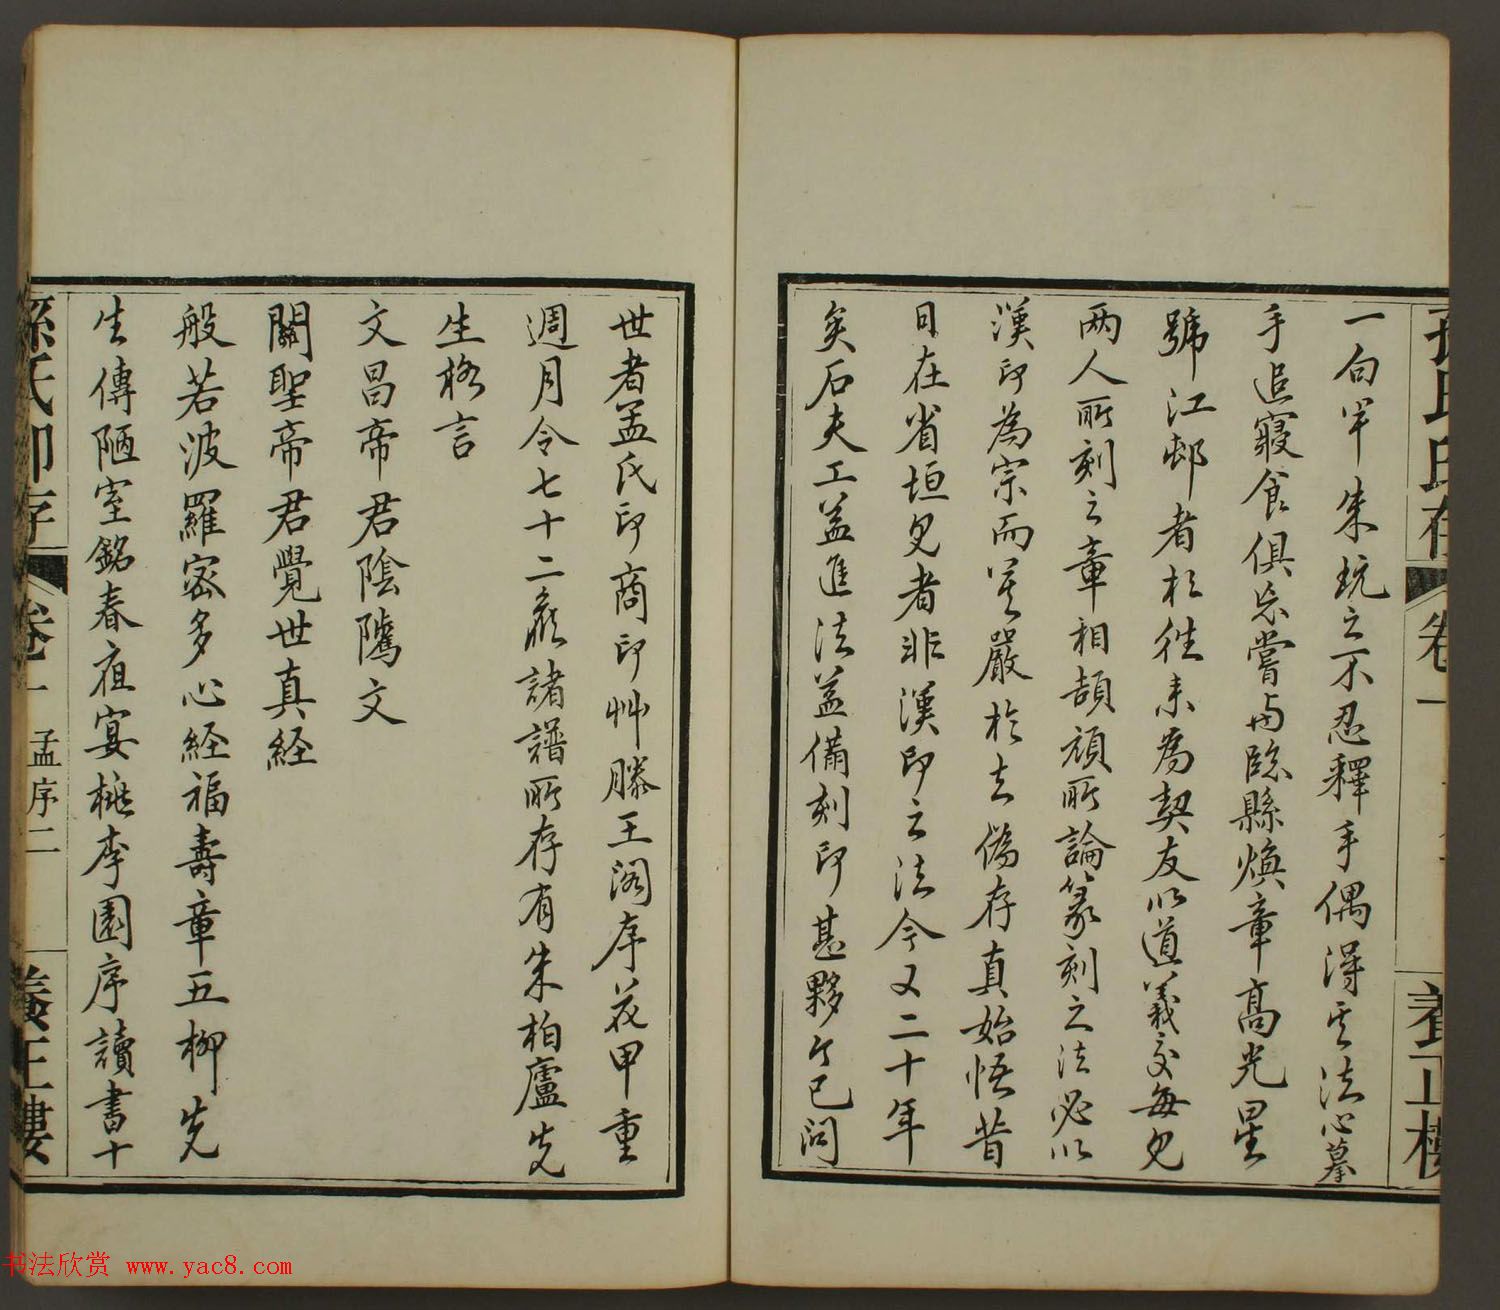 孫氏印存
卷一
養正樓
一句半朱玩之不忍釋手偶得其法心摹
手追寢食俱忘嘗与臨縣煥章高光星
號江邨者於往来為契友以道義交每見
两人所刻之章相頡頏所論篆刻之法必以
漢印為宗而其嚴於去偽存真始悟昔
日在省垣見者非漢印之法今又二十年
矣石夫工益進法益備刻印甚夥今已問
世者孟氏印商印艸滕王阁序花甲重
週月令七十二候諸譜所存有朱柏廬先
生格言
文昌帝君陰隲文
關聖帝君覺世真経
般若波羅密多心経福壽章五柳先
生傳陋室銘春夜宴桃李園序讀書十
孫氏印存
卷一
孟序二
養正樓
书法欣赏 www.yac8.com